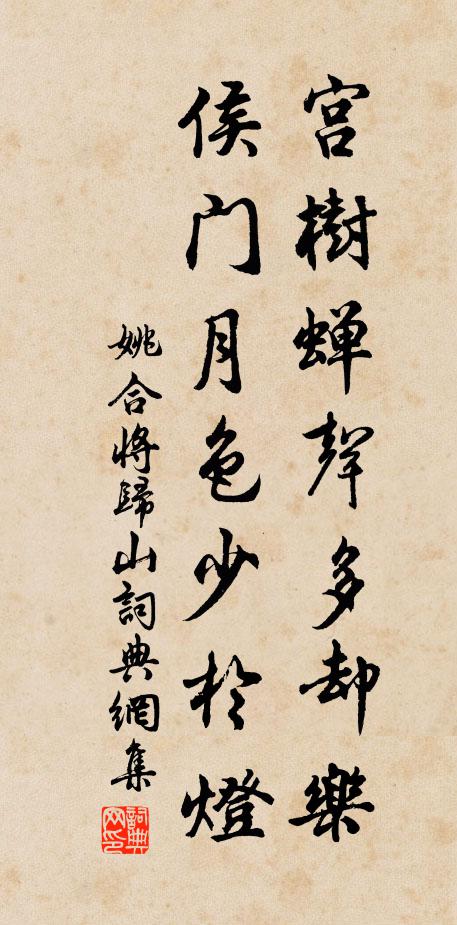 宮樹蟬聲多却樂
侯門月色少於燈
姚合將歸山詞典網集
詞典网印